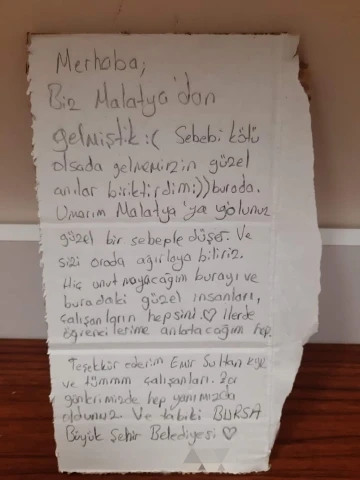 Merhaba;
Biz Malatya'dan
gelmiştik :( Sebebi kötü
olsada gelmemizin güzel
anılar biriktirdim:)) burada.
Umarım Malatya'ya yolunuz
güzel bir sebeple düşer. Ve
sizi orada ağırlaya biliriz.
Hiç unutmayacağım burayı ve
buradaki güzel insanları,
çalışanların hepsini ♡ İlerde
öğrencilerime anlatacağım hep
Teşekkür ederim Emir Sultan
ve tümmm çalışanları. Zor
günlerimizde hep yanımızda
oldunuz Ve tabiki BURSA
Büyük Şehir Belediyesi ♡